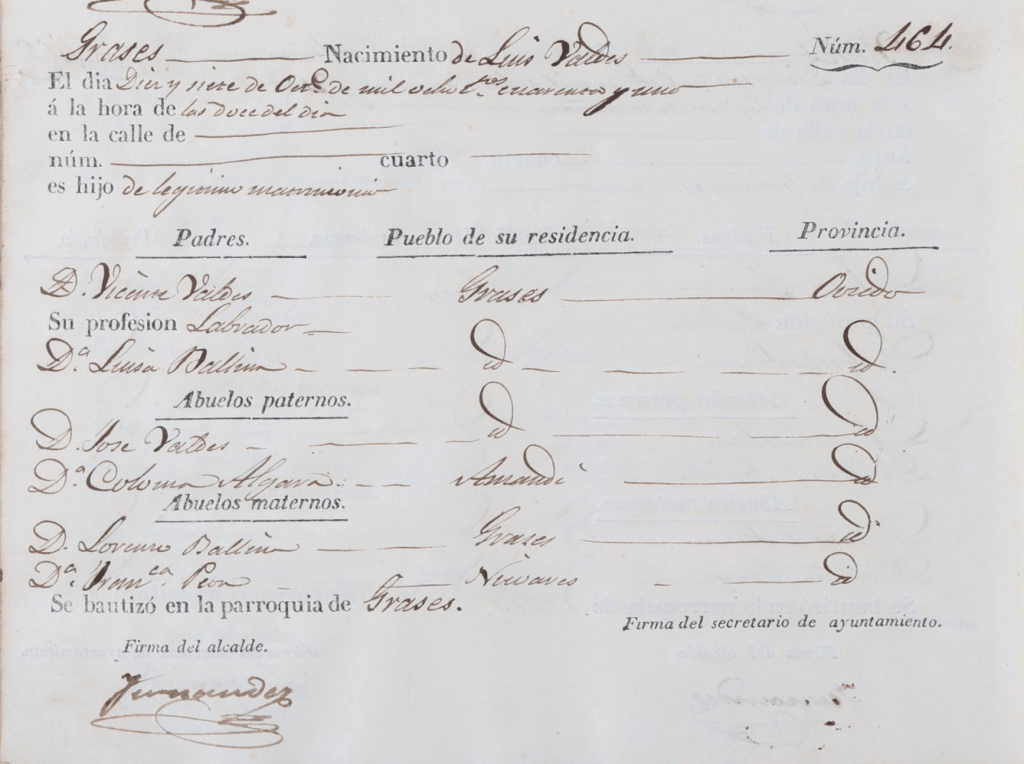 Grases Nacimiento de Luis Valdes Núm. 464.
El dia Diez y siete de Oct.e de mil ocho.tos cuarenta y uno
á la hora de las doce del dia
en la calle de
núm. cuarto
es hijo de legitimo matrimonio
Padres. Pueblo de su residencia. Provincia.
D. Vicente Valdes Grases Oviedo
Su profesion Labrador
D.a Luisa Ballina id id.
Abuelos paternos.
D. Jose Valdes id id
D.a Coloma Algara. Amandi id
Abuelos maternos.
D. Lorenzo Ballina Grases id
D.a Fran.ca Peon Nivares id
Se bautizó en la parroquia de Grases.
Firma del secretario de ayuntamiento.
Firma del alcalde.
Fernandez